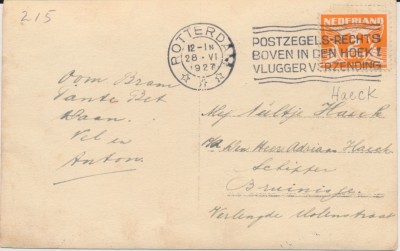 215
ROTTERDAM
12-1N
28 VI
1927
POSTZEGELS-RECHTS
BOVEN IN DEN HOEK!
VLUGGER VERZENDING
NEDERLAND
Haeck
Oom Bram
Tante Bet
Daan.
Nel en
Anton.
Mej Neeltje Haeck
Den Heer Adriaan Haeck
Schipper
Bruinisse.
Verlengde Molenstraat